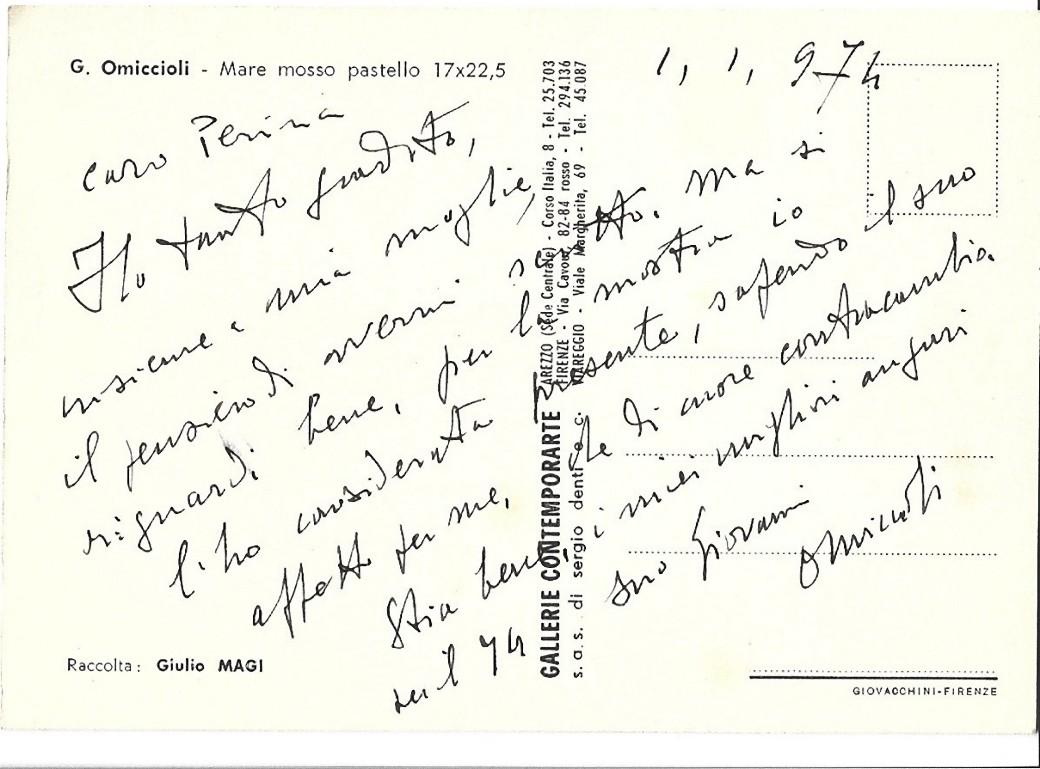 G. Omiccioli - Mare mosso pastello 17x22,5
1, 1, 974
caro Perina
Ho tanto gradito,
insieme a mia moglie,
il pensiero di avermi scritto. Ma si
riguardi bene, per la mostra io
l'ho considerata presente, sapendo il suo
affetto per me, che di cuore contracambio.
Stia bene, i miei migliori auguri
per il 74 suo Giovanni
Omiccioli
GALLERIE CONTEMPORARTE
s.a.s. di sergio denti e c.
AREZZO (Sede Centrale) - Corso Italia, 8 - Tel. 25.703
FIRENZE - Via Cavour, 82-84 rosso - Tel. 294.136
VIAREGGIO - Viale Margherita, 69 - Tel. 45.087
Raccolta: Giulio MAGI
GIOVACCHINI-FIRENZE